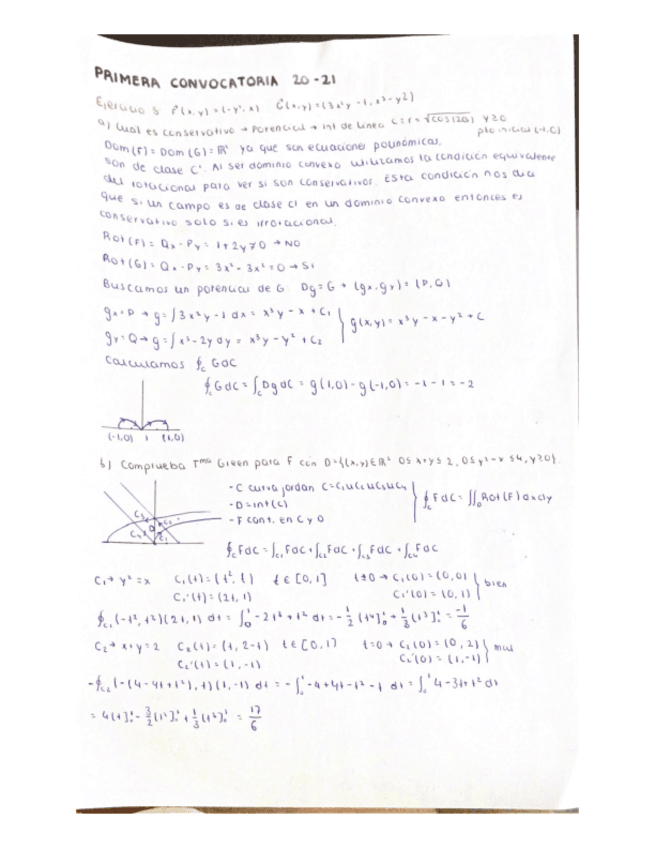 PRIMERA CONVOCATORIA 20-21
Ejercicio 5 F(x,y)=(-y², x) G(x,y)=(3x²y-1, x³-y2)
a) Cual es conservativo → Potencial → int de linea C=r=√cos(2θ) y≥0
pto inicial (-1,0)
Dom(F)=Dom(G)=ℝ² ya que son ecuaciones polinómicas,
son de clase C¹. Al ser dominio convexo utilizamos la condición equivalente
del rotacional para ver si son conservativos. Esta condición nos dice
que si un campo es de clase C1 en un dominio convexo entonces es
conservativo solo si es irrotacional.
Rot(F)=Qx-Py=1+2y≠0→NO
Rot(G)=Qx-Py=3x²-3x²=0→Si
Buscamos un potencial de G: Dg=G → (gx,gy)=(P,Q)
gx=P→g=∫3x²y-1 dx=x³y-x+C₁
g(x,y)=x³y-x-y²+C
gy=Q→g=∫x³-2y dy=x³y-y²+C₂
Calculamos ∮c GdC
∮c GdC=∫c DgdC=g(1,0)-g(-1,0)=-1-1=-2
(-1,0) 1 (1,0)
b) Comprueba Tma Green para F con D={(x,y)∈ℝ² 0≤x+y≤2, 0≤y²-x≤4, y≥0}.
-C curva jordan C=C₁∪C₂∪C₃∪C₄
-D=int(C)
∮c FdC=∬D Rot(F)dxdy
-F cont. en C y D
∮c FdC=∫c₁FdC+∫c₂FdC+∫c₃FdC+∫c₄FdC
C₁→y²=x C₁(t)=(t²,t) t∈[0,1] t=0→C₁(0)=(0,0)
bien
C₁'(t)=(2t,1) C₁'(0)=(0,1)
∮c₁(-t²,t²)(2t,1)dt=∫₀¹-2t³+t²dt=-½[t⁴]₀¹+⅓[t³]₀¹=-1/6
C₂→x+y=2 C₂(t)=(t,2-t) t∈[0,1] t=0→C₂(0)=(0,2)
mal
C₂'(t)=(1,-1) C₂'(0)=(1,-1)
-∮c₂(-(4-4t+t²),t)(1,-1)dt=-∫₀¹-4+4t-t²-t dt=∫₀¹4-3t+t²dt
=4[t]₀¹-3/2[t²]₀¹+⅓[t³]₀¹=17/6